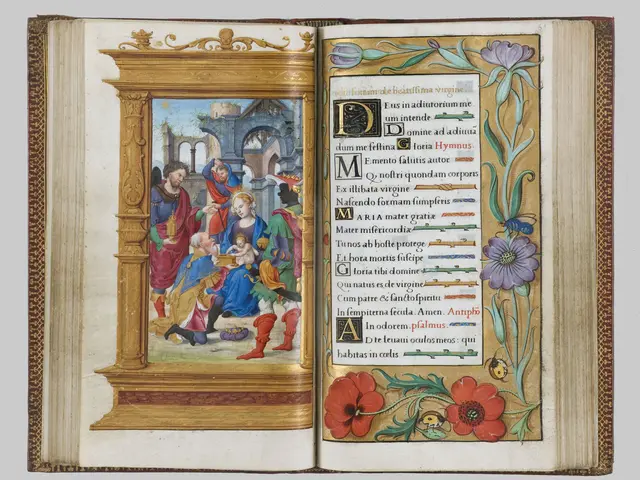 beatissima virgine
Deus in adiutorium me
um intende Domine ad adiuuā
dum me festina Gloria Hymnus.
Memento salutis autor
Qz nostri quondam corporis
Ex illibata virgine
Nascendo formam sumpseris
MARIA mater gratiæ
Mater misericordiæ
Tu nos ab hoste protege
Et hora mortis suscipe
Gloria tibi domine
Qui natus es de virgine
Cum patre & sancto spiritu
In sempiterna secula. Amen. Antipho
In odorem. psalmus.
Ad te leuaui oculos meos: qui
habitas in cœlis